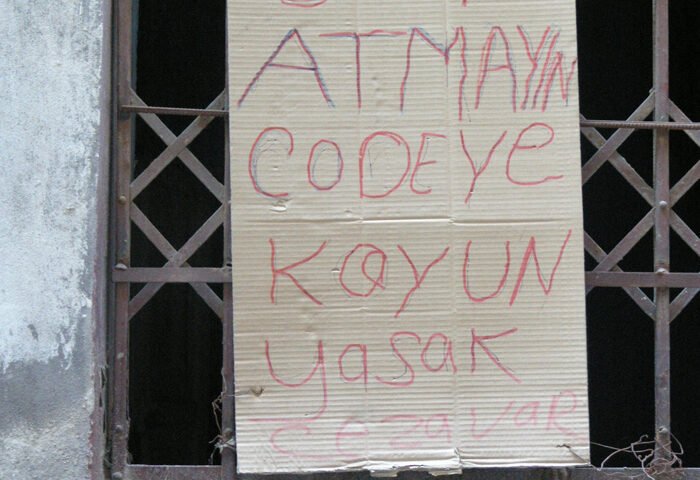 ATMAYIN
CODEYe
KOYUN
yasak
cezavaR